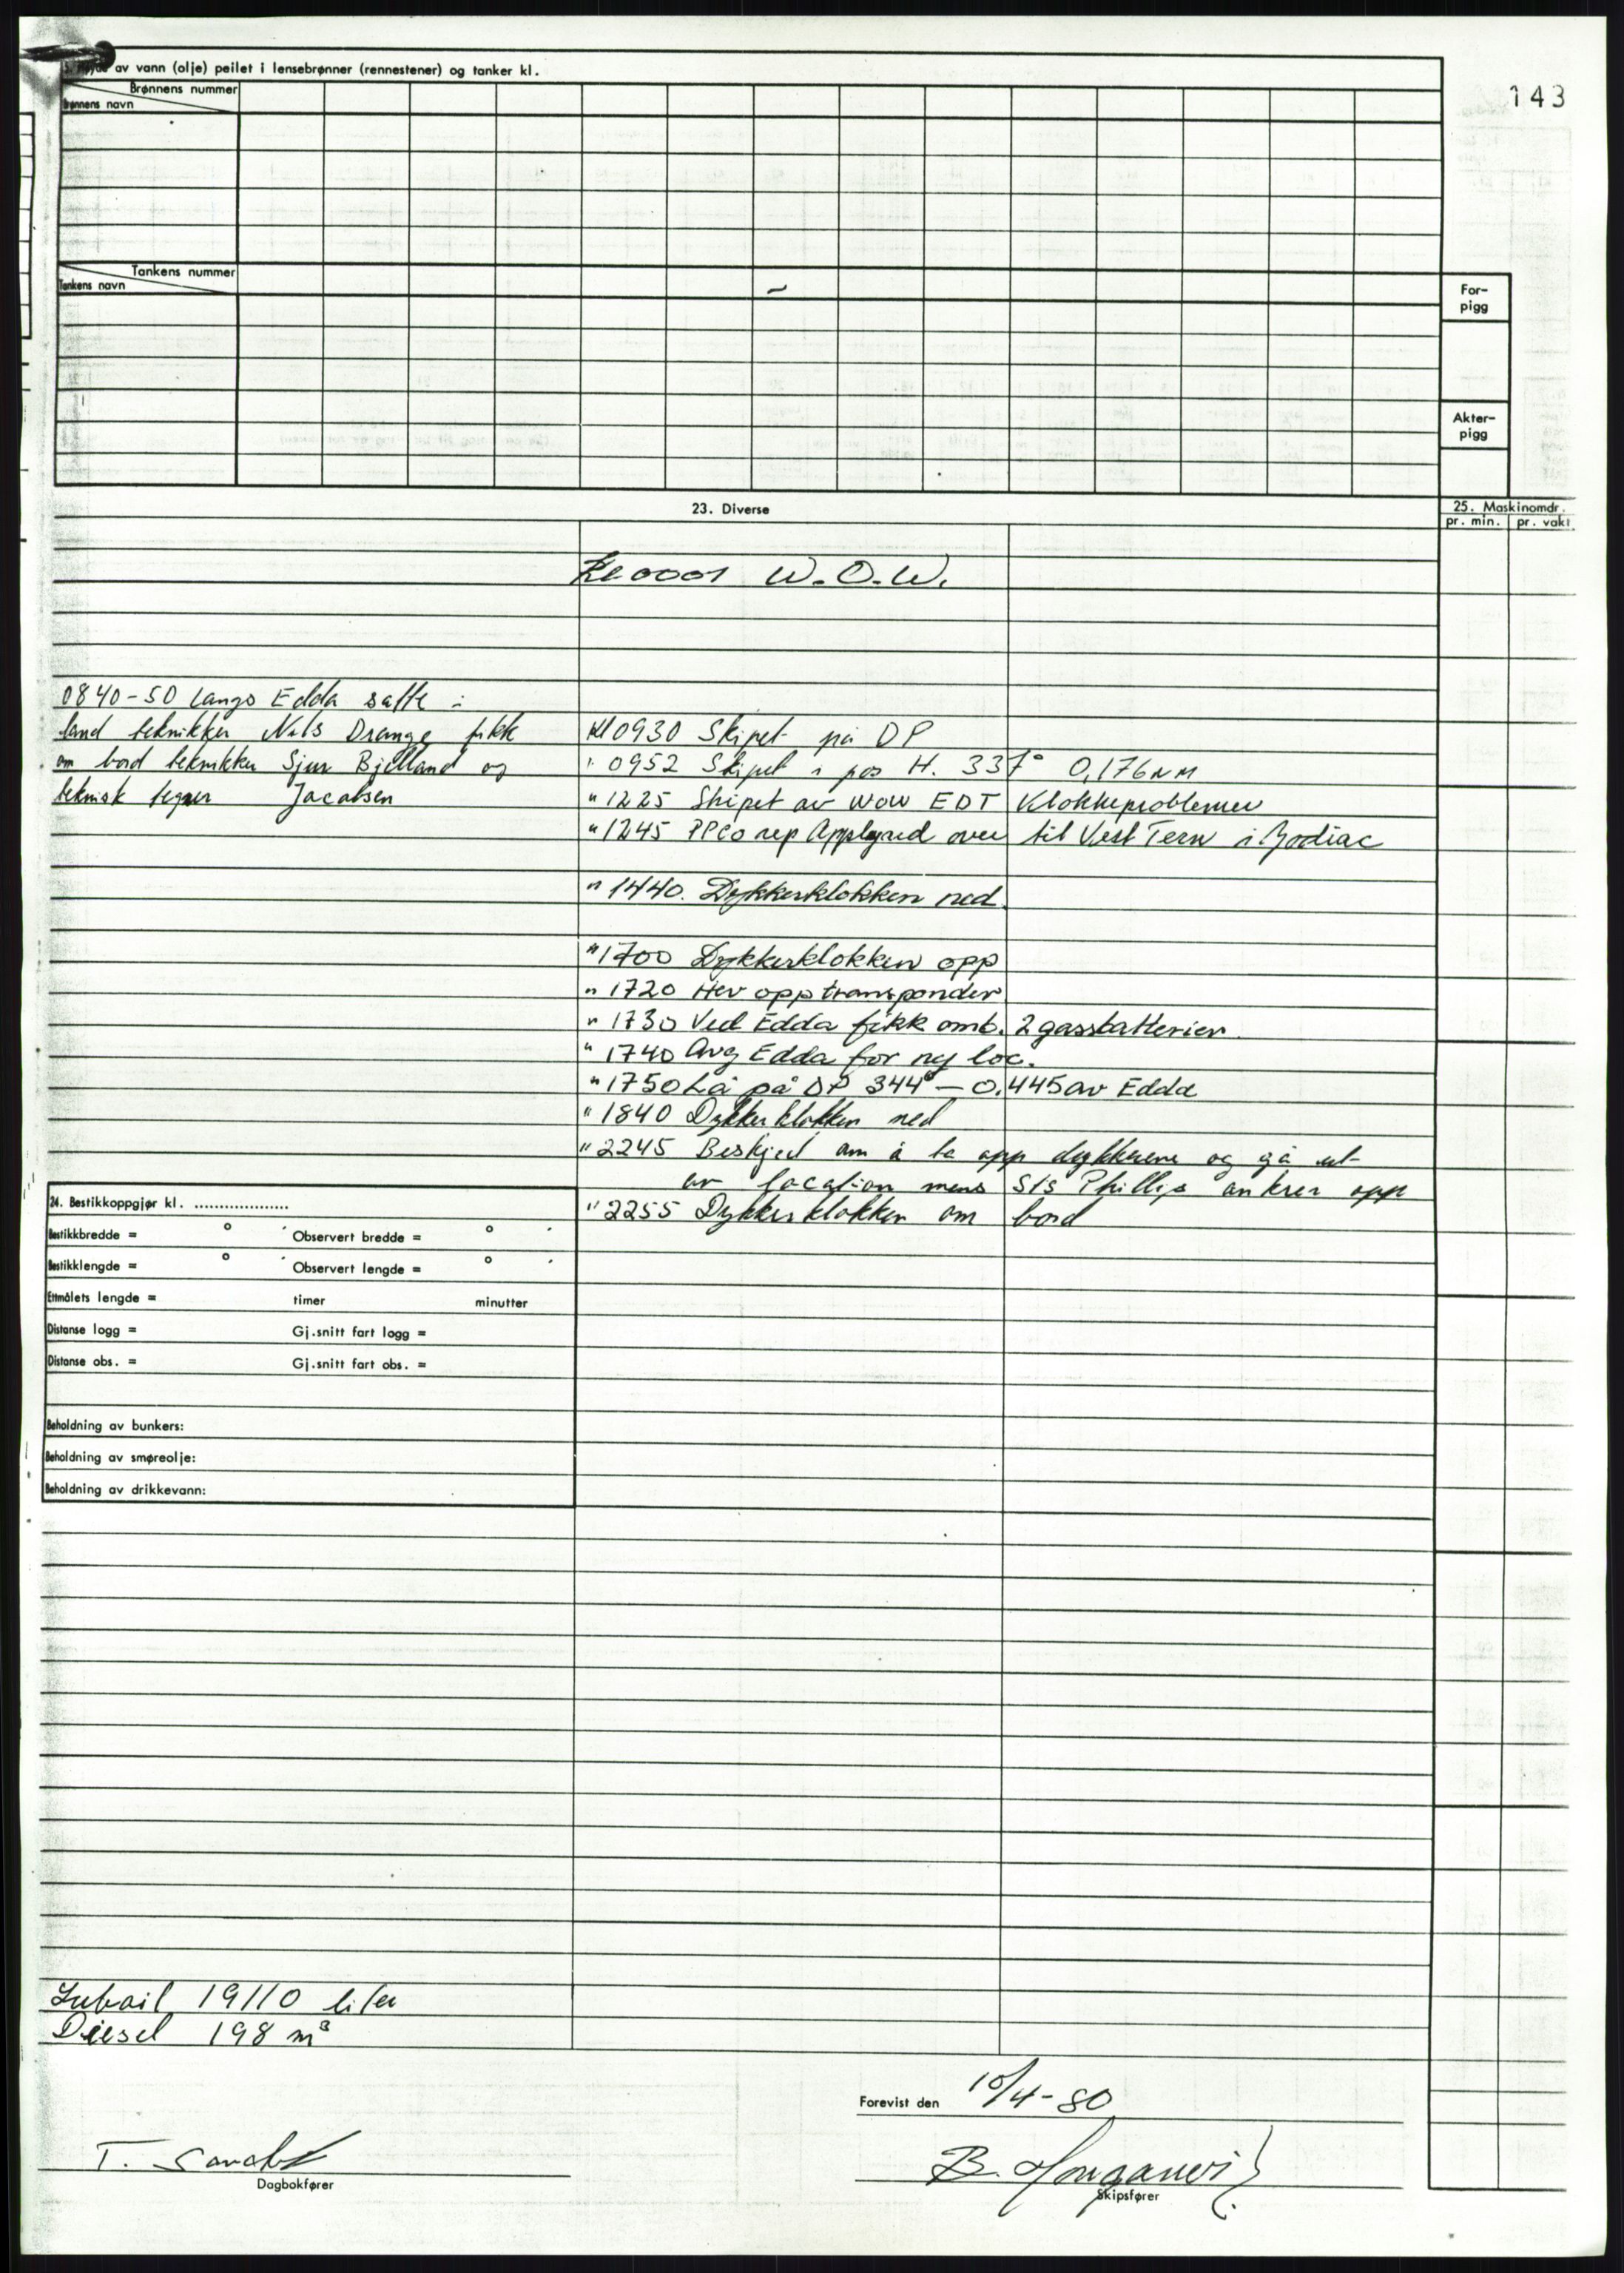 143
av vann (olje) peilet i lensebrønner (rennestener) og tanker kl.
Brønnens nummer
Brønnens navn
Tankens nummer
Tankens navn
For-
pigg
Akter-
pigg
23. Diverse
25. Maskinomdr.
pr. min. pr. vakt
Kl 0001 W.O.W.
0840-50 Langs Edda satte i
land tekniker Nils Drange fikk
om bord tekniker Sjur Bjelland og
teknisk tegner Jacobsen
Kl 0930 Skipet på DP
" 0952 Skipet i pos H. 337° 0,176 NM
" 1225 Skipet av WOW EDT Klokkeproblemer
" 1245 PPCo rep Appleyard over til Vest Tern i Zodiac
" 1440. Dykkerklokken ned.
" 1700 Dykkerklokken opp
" 1720 Hev opp transponder
" 1730 Ved Edda fikk omb. 2 gassbatterier.
" 1740 Avg Edda for ny loc.
" 1750 Lå på DP 344° - 0,445 av Edda
" 1840 Dykkerklokken ned
" 2245 Beskjed om å ta opp dykkerene og gå ut
av location mens S/S Phillips ankrer opp
" 2255 Dykkerklokken om bord
24. Bestikkoppgjør kl. ..................
Bestikkbredde = ° ' Observert bredde = ° '
Bestikklengde = ° ' Observert lengde = ° '
Ettmålets lengde = timer minutter
Distanse logg = Gj.snitt fart logg =
Distanse obs. = Gj.snitt fart obs. =
Beholdning av bunkers:
Beholdning av smøreolje:
Beholdning av drikkevann:
Luboil 19110 liter
Diesel 198 m³
Forevist den 10/4-80
T.
Dagbokfører
B.
Skipsfører